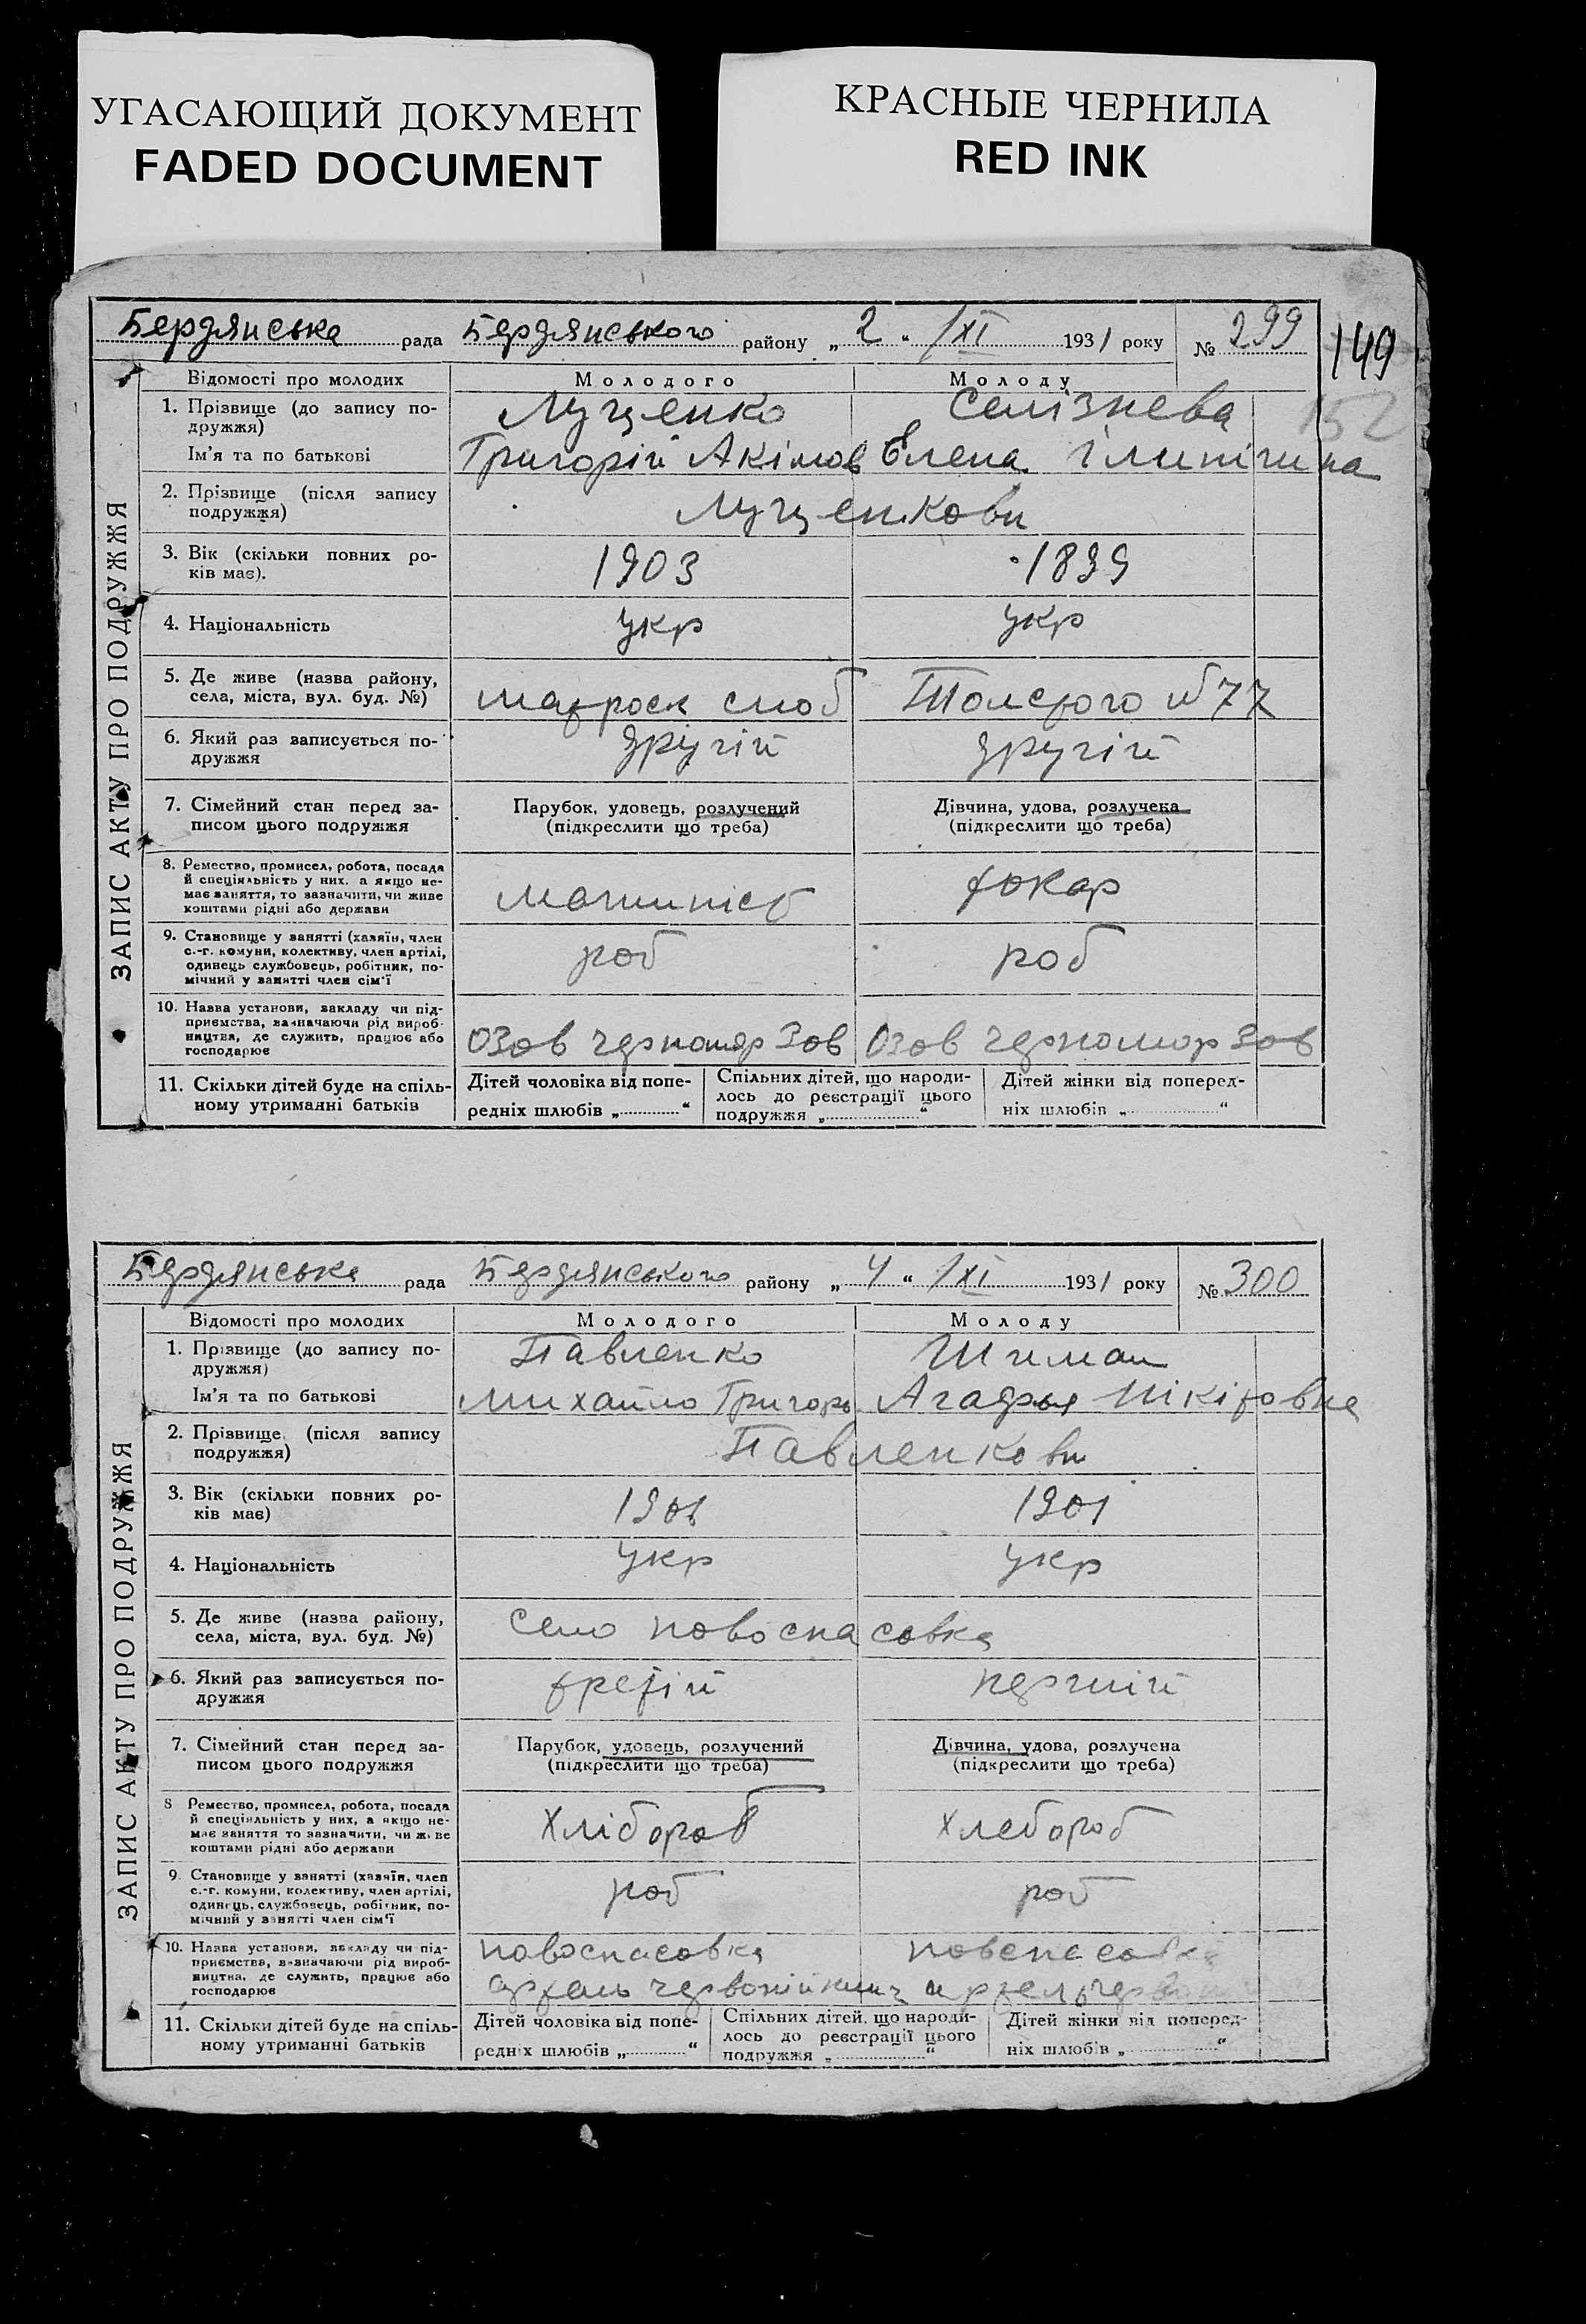 УГАСАЮЩИЙ ДОКУМЕНТ
FADED DOCUMENT
КРАСНЫЕ ЧЕРНИЛА
RED INK
Бердянська рада Бердянського району „2“ /XI 1931 року № 299
149
152
ЗАПИС АКТУ ПРО ПОДРУЖЖЯ
Відомості про молодих Молодого Молоду
1. Прізвище (до запису по-
дружжя) Луценко Селізнева
Ім'я та по батькові Григорій Акімов Єлена
2. Прізвище (після запису
подружжя) Луценкови
3. Вік (скільки повних ро-
ків має). 1903 1899
4. Національність укр укр
5. Де живе (назва району,
села, міста, вул. буд. №) матроск слоб Толстого № 77
6. Який раз записується по-
дружжя другій другій
7. Сімейний стан перед за-
писом цього подружжя
Парубок, удовець, розлучений
(підкреслити що треба)
Дівчина, удова, розлучена
(підкреслити що треба)
8. Ремество, промисел, робота, посада
й спеціяльність у них, а якщо не-
має заняття, то зазначити, чи живе
коштами рідні або держави
машиніст токар
9. Становище у занятті (хазяїн, член
с.-г. комуни, колективу, член артілі,
одинець службовець, робітник, по-
мічний у занятті член сім'ї
роб роб
10. Назва установи, закладу чи під-
приємства, зазначаючи рід вироб-
ництва, де служить, працює або
господарює
Озов черномор Зов Озов черномор Зов
11. Скільки дітей буде на спіль-
ному утриманні батьків
Дітей чоловіка від попе-
редніх шлюбів „ “
Спільних дітей, що народи-
лось до реєстрації цього
подружжя „ “
Дітей жінки від поперед-
ніх шлюбів „ “
Бердянська рада Бердянського району „4“ /XI 1931 року № 300
ЗАПИС АКТУ ПРО ПОДРУЖЖЯ
Відомості про молодих Молодого Молоду
1. Прізвище (до запису по-
дружжя) Павленко Шиман
Ім'я та по батькові Михайло Григорь Агафья Нікітовна
2. Прізвище (після запису
подружжя) Павленкови
3. Вік (скільки повних ро-
ків має) 1901 1901
4. Національність укр укр
5. Де живе (назва району,
села, міста, вул. буд. №) село новоспасовка
6. Який раз записується по-
дружжя третій першій
7. Сімейний стан перед за-
писом цього подружжя
Парубок, удовець, розлучений
(підкреслити що треба)
Дівчина, удова, розлучена
(підкреслити що треба)
8 Ремество, промисел, робота, посада
й спеціяльність у них, а якщо не-
має заняття то зазначити, чи живе
коштами рідні або держави
Хлібороб хлебороб
9 Становище у занятті (хазяїн, член
с.-г. комуни, колективу, член артілі,
одинець, службовець, робітник, по-
мічний у занятті член сім'ї
роб роб
10. Назва установи, закладу чи під-
приємства, зазначаючи рід вироб-
ництва, де служить, працює або
господарює
новоспасовка новспасовка
артель артель
11. Скільки дітей буде на спіль-
ному утриманні батьків
Дітей чоловіка від попе-
редніх шлюбів „ “
Спільних дітей, що народи-
лось до реєстрації цього
подружжя „ “
Дітей жінки від поперед-
ніх шлюбів „ “